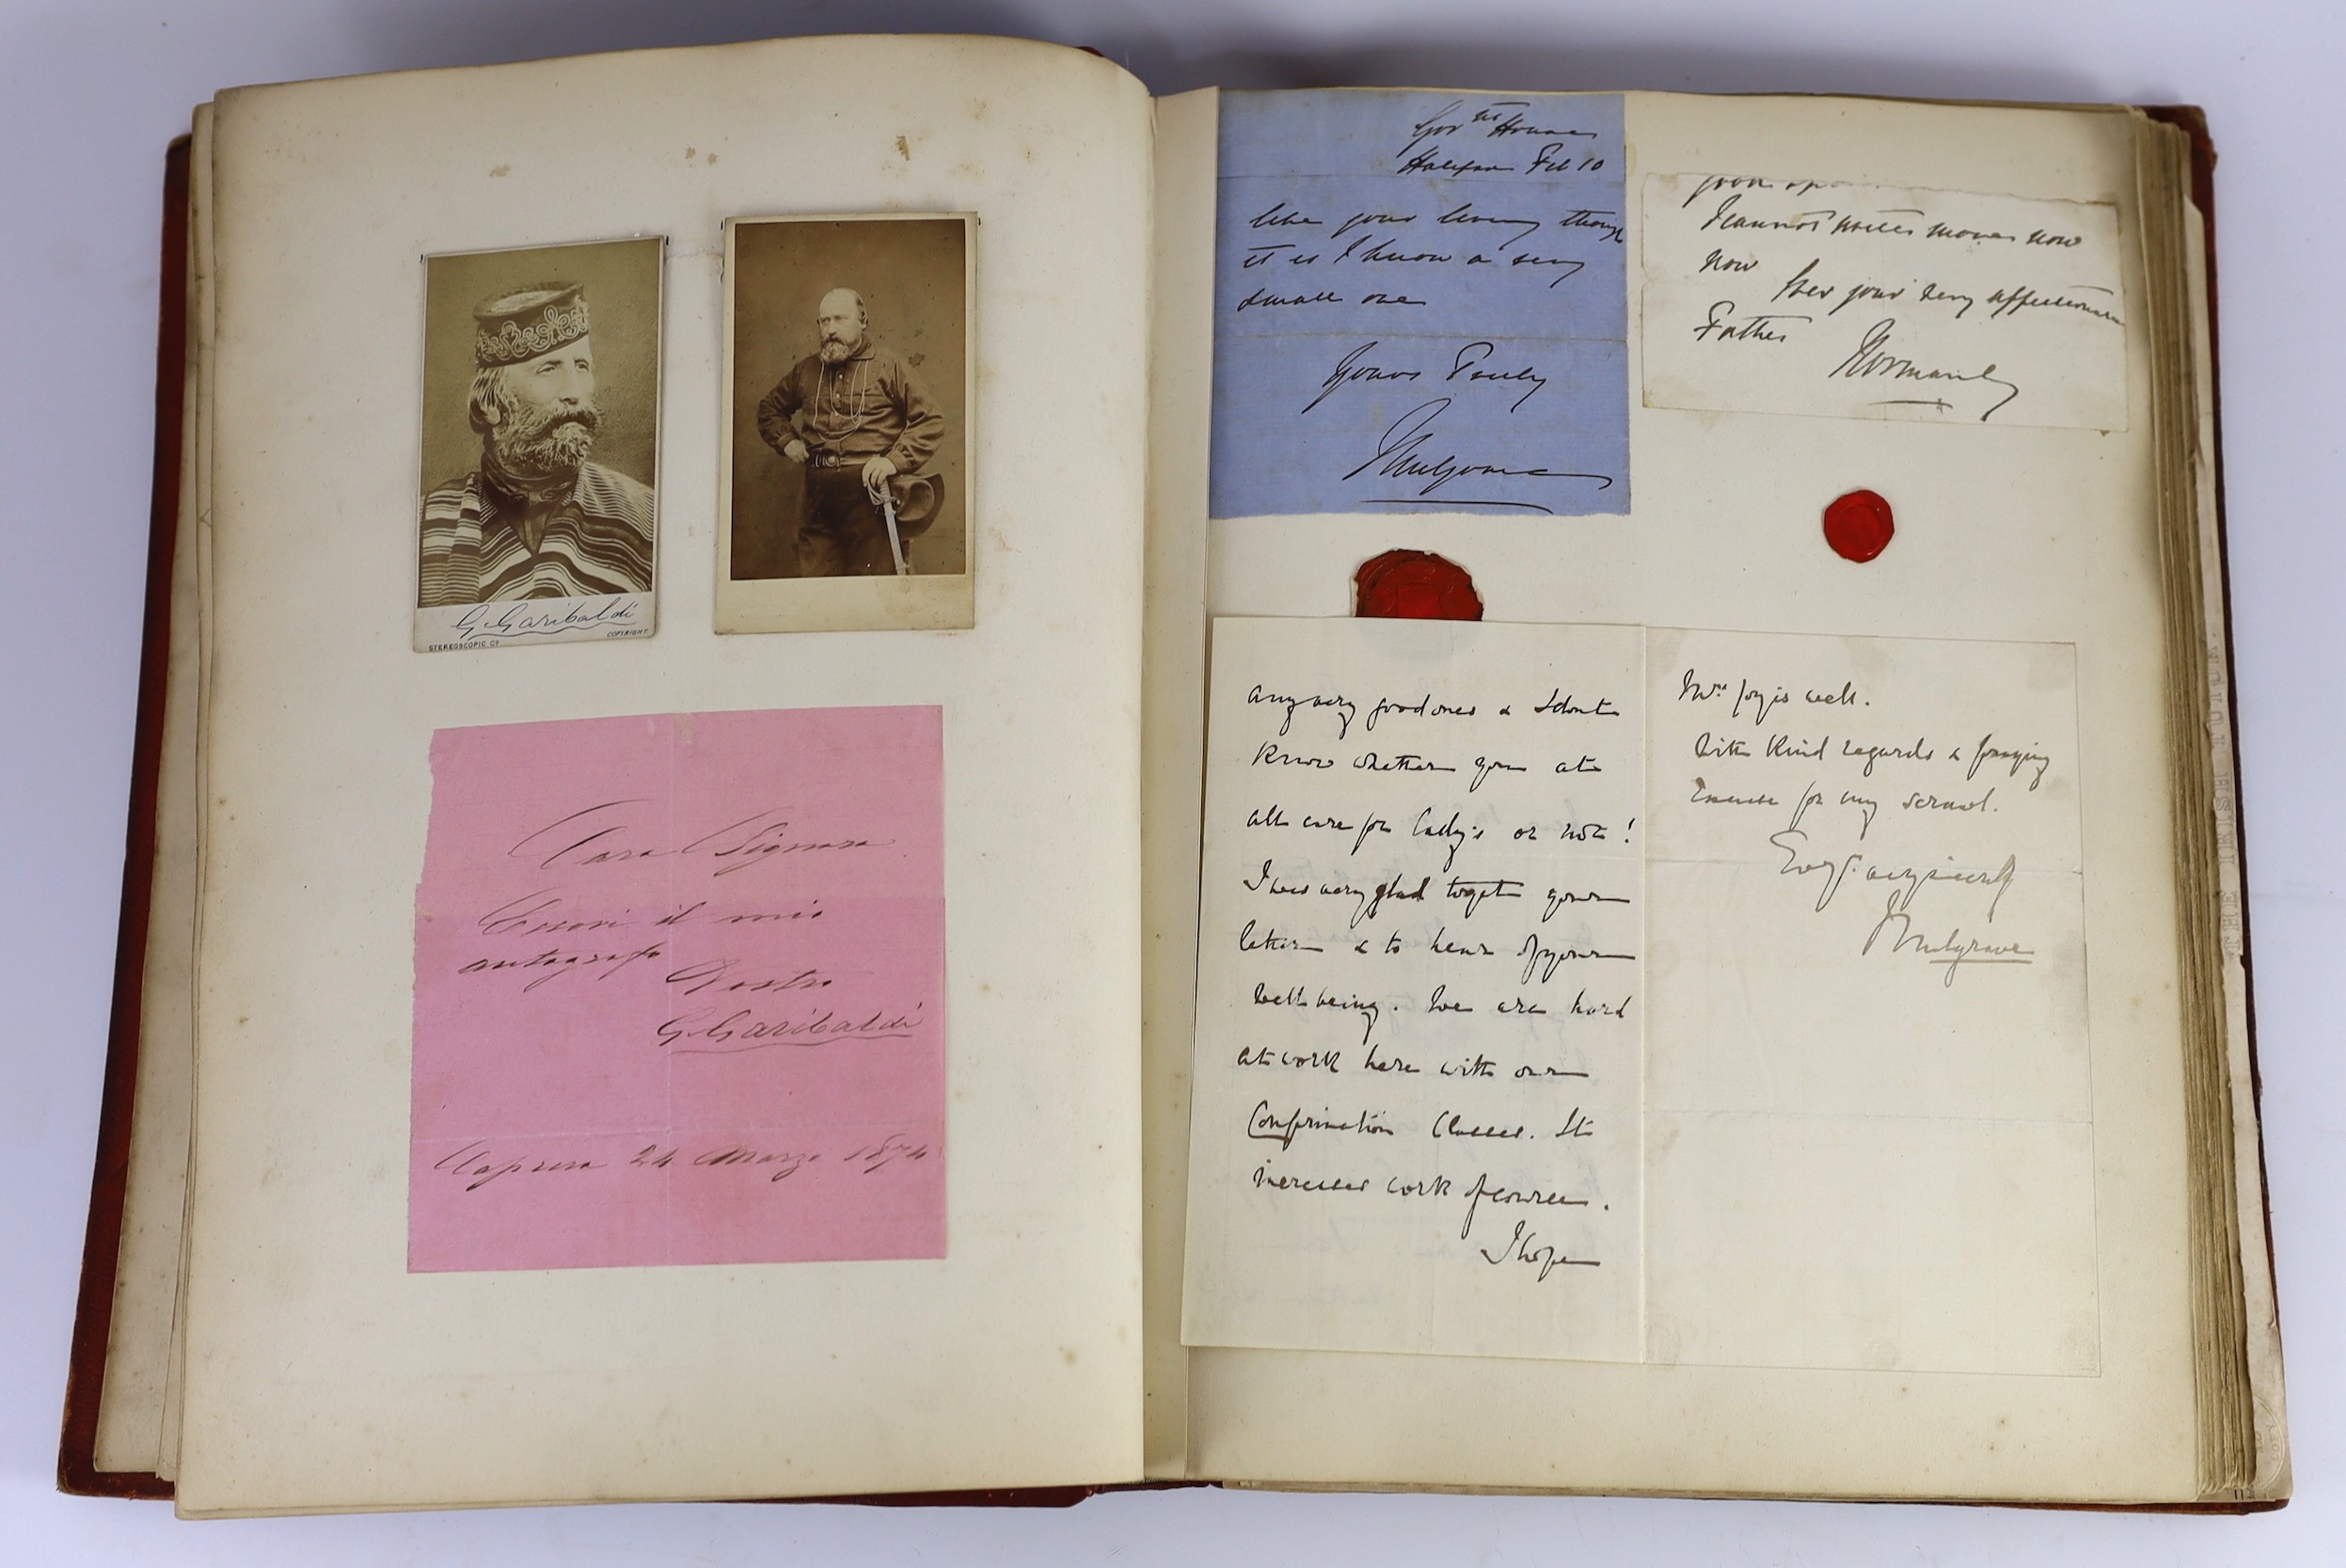 G. Garibaldi
STEREOSCOPIC Co
COPYRIGHT
Cara Signora
Eccovi il mio
autografo
Vostro
G. Garibaldi
Caprera 24 Marzo 1874
Govnt House
Halifax Feb 10
like your living though
it is I know a very
small one
Yours Truly
Mulgrave
I cannot write more now
now
Ever your very affectionate
Father
Normanby
any very good ones & I don't
know whether you at
all care for Lady's or not!
I was very glad to get your
letter & to hear of your
well being. We are hard
at work here with our
Confirmation Classes. It
increases work of course.
I hope
Mrs Joy is well.
With kind regards & praying
excuse for my scrawl.
Evr. very sincerely
Mulgrave